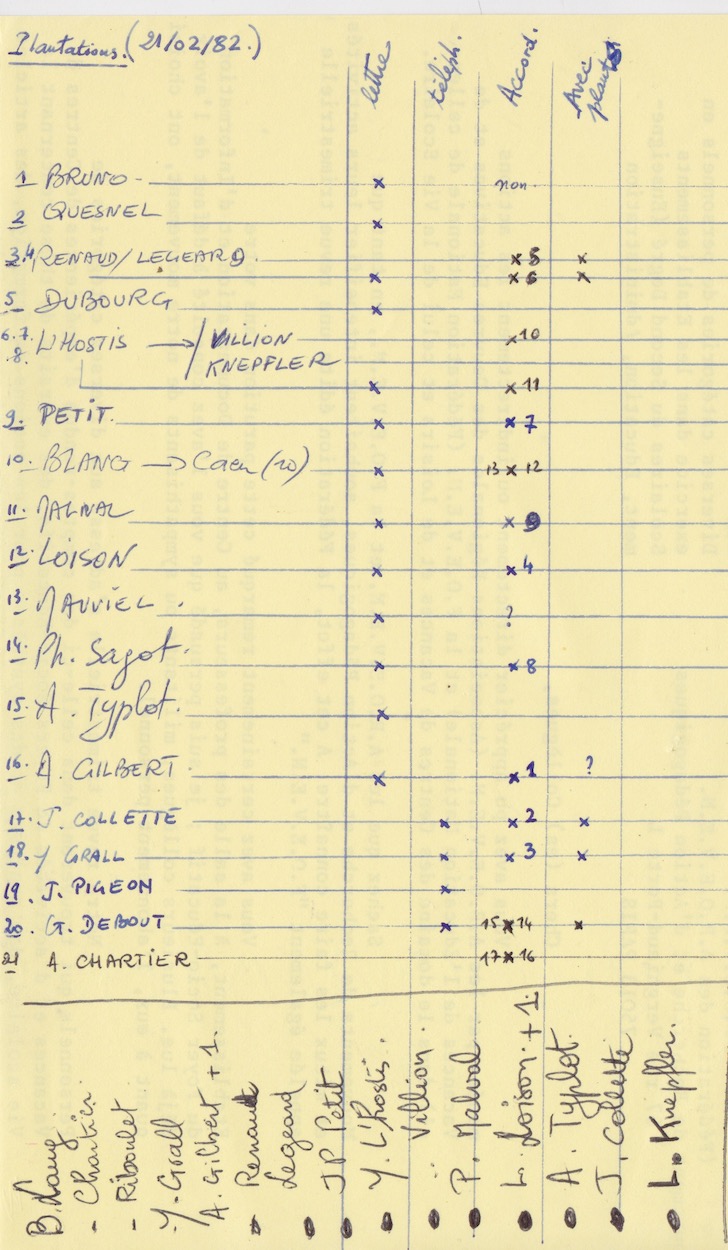 Plantations. (21/02/82.)
lettre téléph. Accord. Avec plants
1 BRUNO x non.
2 QUESNEL x
3.4 RENAUD/LEGEARD. x 5 x
x x 6 x
5 DUBOURG x
6.7. L'HOSTIS → / VILLION x 10
8. KNEPFLER
x x 11
9. PETIT. x x 7
10. BLANG → Caen (20) x 13 x 12
11. MALVAL x x 9
12. LOISON x x 4
13. MAUVIEL . x ?
14. Ph. Sagot. x x 8
15. A. Typlot. x
16. A. GILBERT x x 1 ?
17. J. COLLETTE x x 2 x
18. Y GRALL x x 3 x
19. J. PIGEON x
20. G. DEBOUT x 15 x 14 x
21 A. CHARTIER 17 x 16
B. Lang.
- Chartier.
- Riboulet
Y. Grall
A. Gilbert + 1.
Renault
Legeard
• JP Petit
• Y. L'Hostis.
• Villion.
• P. Malval
• L. Loison. + 1.
• A. Typlot.
• J. Collette
• L. Knepfler.